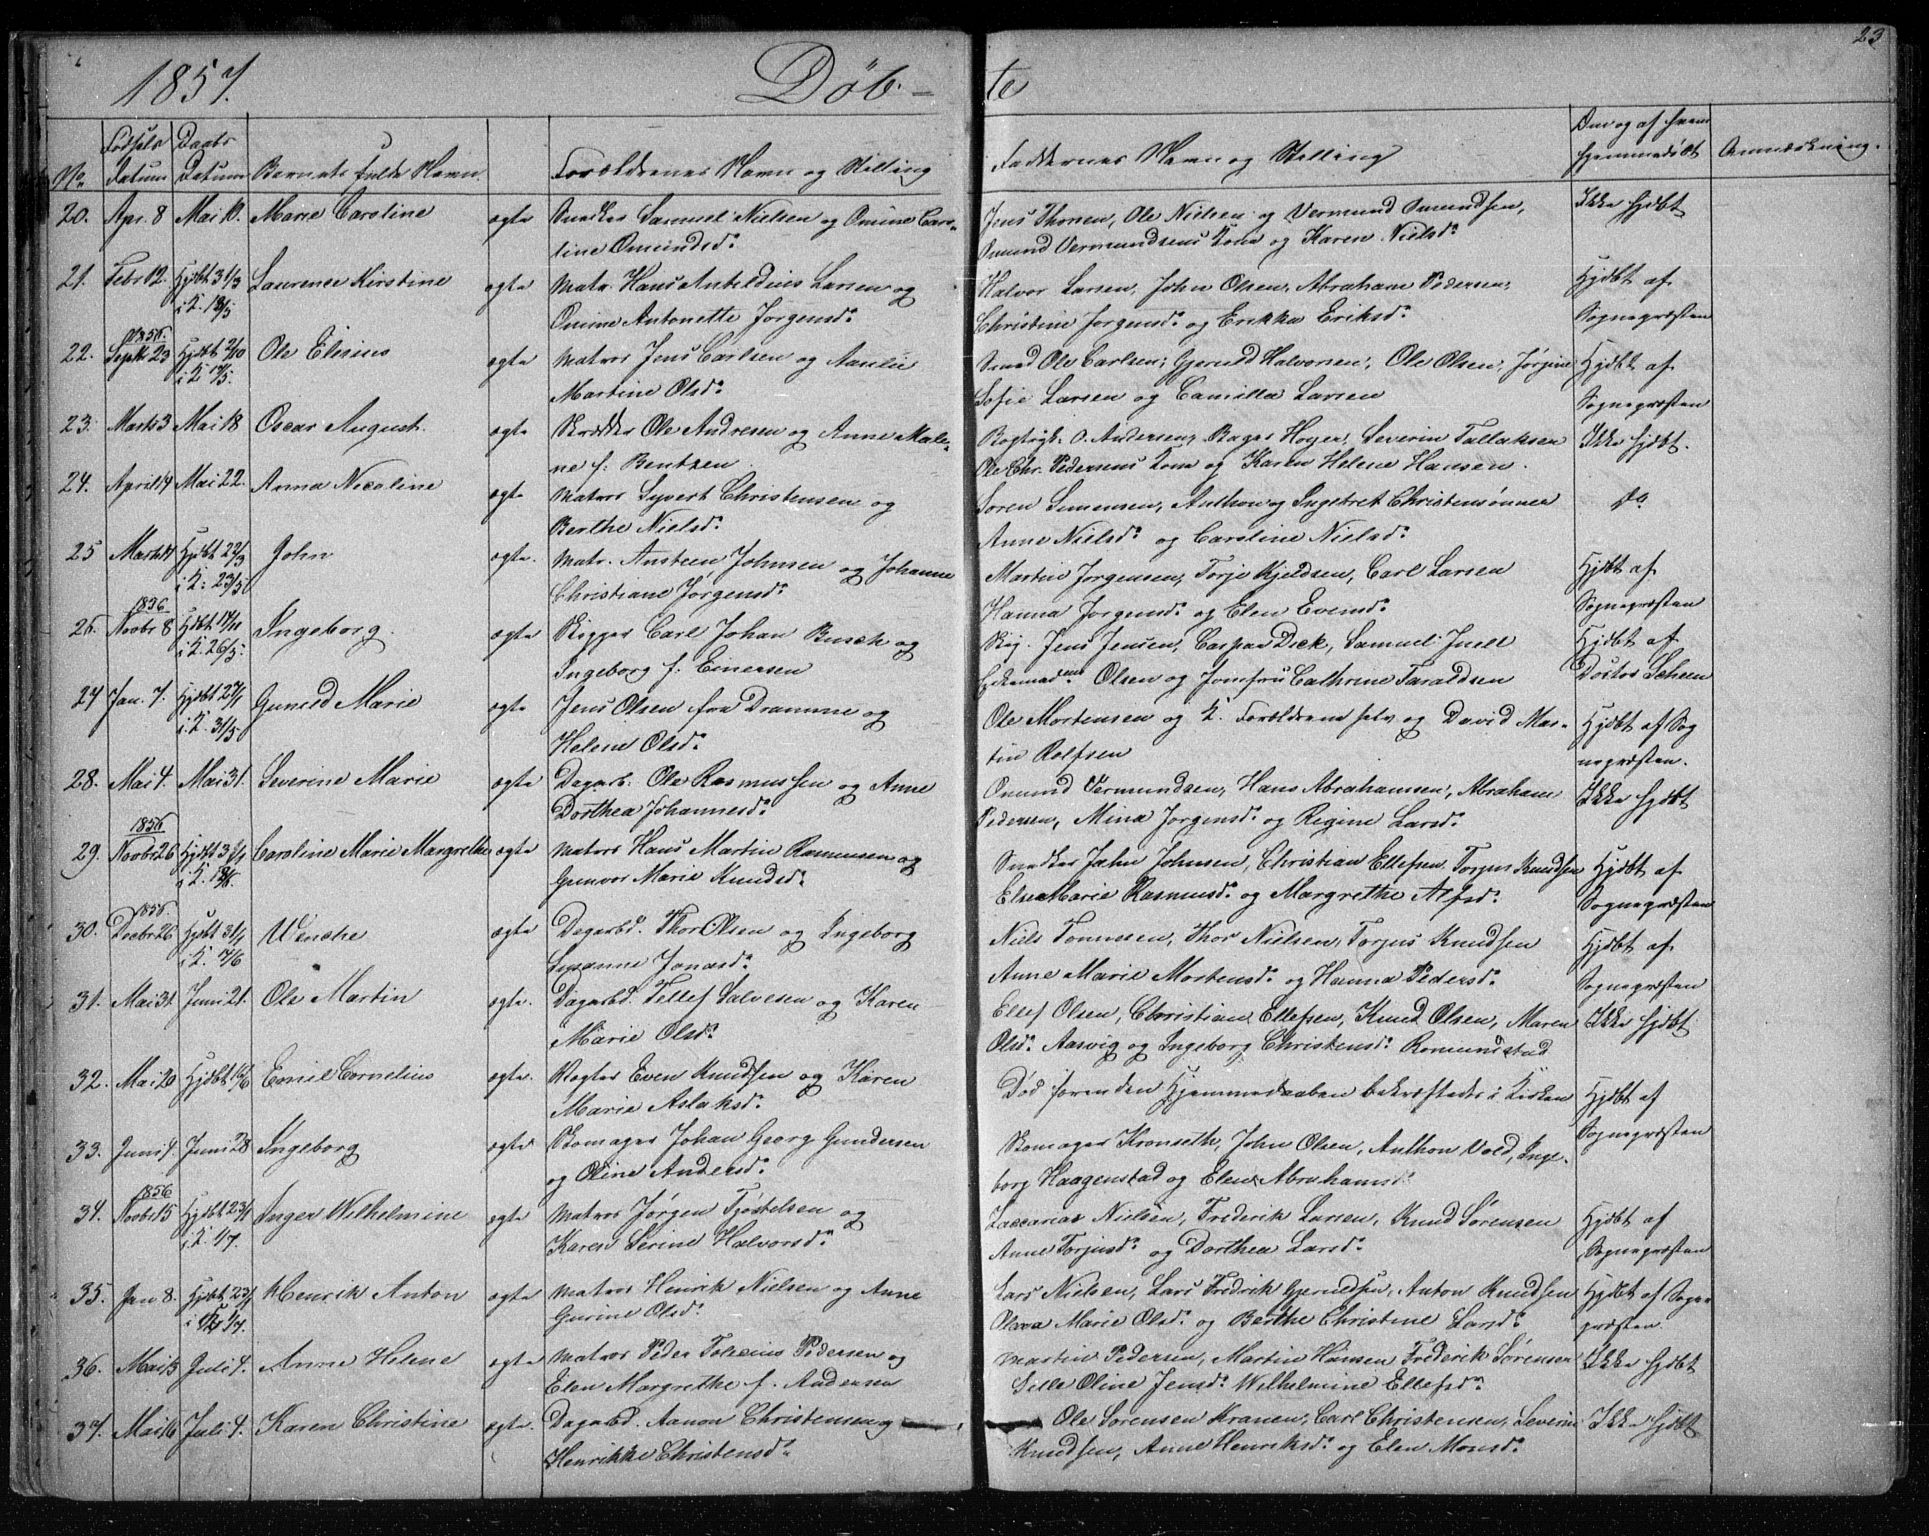 23
1857. Døb- te
No. Fødsels Datum Daabs Datum Barnets fulde Navn. Forældrenes Navn og Stilling Faddernes Navn og Stilling Om og af hvem hjemmedøbt Anmærkning.
20. Apr. 8 Mai 10. Marie Caroline ægte Snedker Samuel Nielsen og Omine Caro- Jens Thorsen, Ole Nielsen og Vermund Omundsen, Ikke hjdbt
line Omundsd. Omund Vermundsens Kone og Karen Nielsd.
21. Febr 12. Hjdbt 31/3 Laurence Kirstine ægte Matr. Hans Anteldius Larsen og Halvor Larsen, John Olsen, Abraham Pedersen, Hjdbt af
i K. Omine Antonette Jørgensd. Christine Jørgensd. og Erikka Eriksd. Sognepræsten
1856.
22. Septbr 23 Hjdbt 2/10 Ole Elvius ægte Matros Jens Carlsen og Aanlie Smed Ole Carlsen, Gjeruld Halvorsen, Ole Olsen, Jørgine Hjdbt af
i K 17/5. Martine Olsd. Sofie Larsen og Camilla Larsen Sognepræsten
23. Marts 3 Mai 18 Oscar August. ægte Skrædder Ole Andresen og Anne Male- Bogtryk. O. Andersen, Bager Høyer, Severin Tallaksen Ikke hjdbt.
ne f. Bentzen Ole Chr. Pedersens Kone og Karen Helene Hansen.
24. April 14 Mai 22. Anna Nicoline ægte Matros Syvert Christensen og Søren Simensen, Anthon og Ingebret Christensønner do
Berthe Nielsd. Anne Nielsd. og Caroline Nielsd.
25 Marts 14 Hjdbt 22/3 John ægte. Matr. Ansteen Johnsen og Johanne Martin Jørgensen, Torje Kjeldsen, Carl Larsen Hjdbt af
i K: 23/5 Christiane Jørgensd. Hanna Jørgensd. og Elen Evensd. Sognepræsten
1856
26. Novbr 8 Hjdbt 17/11 Ingeborg. ægte Skipper Carl Johan Busch og Skip. Jens Jensen, Caspar Dick, Samuel Juell Hjdbt af
i K. 26/5. Ingeborg f. Einersen Olsen og Jomfru Cathrine Taraldsen Doctor Scheen
27 Jan. 7. Hjdbt 27/1 Gunild Marie ægte Jens Olsen fra Dramme og Ole Mortensen og K. Forældrene selv og David Mar- Hjdbt af Sog
i K. 31/5 Helene Olsd. tin Rolfsen nepræsten.
28. Mai 4. Mai 31. Severine Marie ægte Dagarb. Ole Rasmussen og Anne Omund Vermundsen, Hans Abrahamsen, Abraham Ikke hjdbt
Dorthea Johannesd. Pedersen, Mina Jørgensd. og Regine Larsd.
1856
29. Novbr 26 Hjdbt Caroline Marie Margrethe ægte Matros Hans Martin Rasmusen og Snedker John Johnsen, Christian Ellefsen, Torjus Knudsen Hjdbt af
i K. Gunvor Marie Knudsd. Else Marie Rasmusd. og Margrethe Alfsd. Sognepræsten
1856.
30. Decbr 26 Hjdbt 31/1 Wenche ægte Dagarbd. Thor Olsen og Ingeborg Niels Tønnesen, Thor Nielsen, Torjus Knudsen Hjdbt af
i K. 14/6 Susanne Jonasd. Anne Marie Mortensd. og Hanna Pedersd. Sognepræsten
31. Mai 31. Juni 21. Ole Martin ægte. Dagarbd. Tellef Salvesen og Karen Ellef Olsen, Christian Ellefsen, Knud Olsen, Maren Ikke hjdbt
Marie Olsd. Olsd. Aasvig og Ingeborg Christensd. Romundstad
32. Mai 20 Hjdbt 16/6 Emil Cornelius ægte. Fogter Even Knudsen og Karen Død førenden Hjemmedaaben bekræftedes i Kirken Hjdbt af
Marie Aslaksd. Sognepræsten
33. Juni 4 Juni 28 Ingeborg ægte Skomager Johan Georg Gundersen Skomager Kronseth, John Olsen, Anthon Vold, Inge-
og Oline Andersd. borg Haagenstad og Elen Abrahamsd.
1856
34. Novbr 15 Hjdbt 23/11 Inger Wilhelmine ægte Matros Jørgen Tjøstelsen og Zaccarias Nielsen, Frederik Larsen, Knud Sørensen Hjdbt af
i K. 1/7. Karen Serine Halvorsd. Anne Torjusd. og Dorthea Larsd. Sognepræsten
35. Jan 8. Hjdbt 23/1 Henrik Anton ægte Matros Henrik Nielsen og Anne Lars Nielsen, Lars Fredrik Gjeruldsen, Anton Knudsen Hjdbt af Sogne
i K 1/7. Gurine Olsd. Olava Marie Olsd. og Berthe Christine Larsd. præsten.
36. Mai 3 Juli 4. Anne Helene ægte Matros Peder Tobias Pedersen og Martin Pedersen, Martin Hansen Frederik Sørensen Ikke hjdbt
Elen Margrethe f. Andersen Sille Oline Jensd. Wilhelmine Ellefsd.
37. Mai 16 Juli 4. Karen Christine ægte. Dagarbd. Aanon Christensen og Ole Sørensen Kranen, Carl Christensen, Severin Ikke hjdbt
Henrikke Christensd. Knudsen, Anne Henriksd. og Elen Monsd.